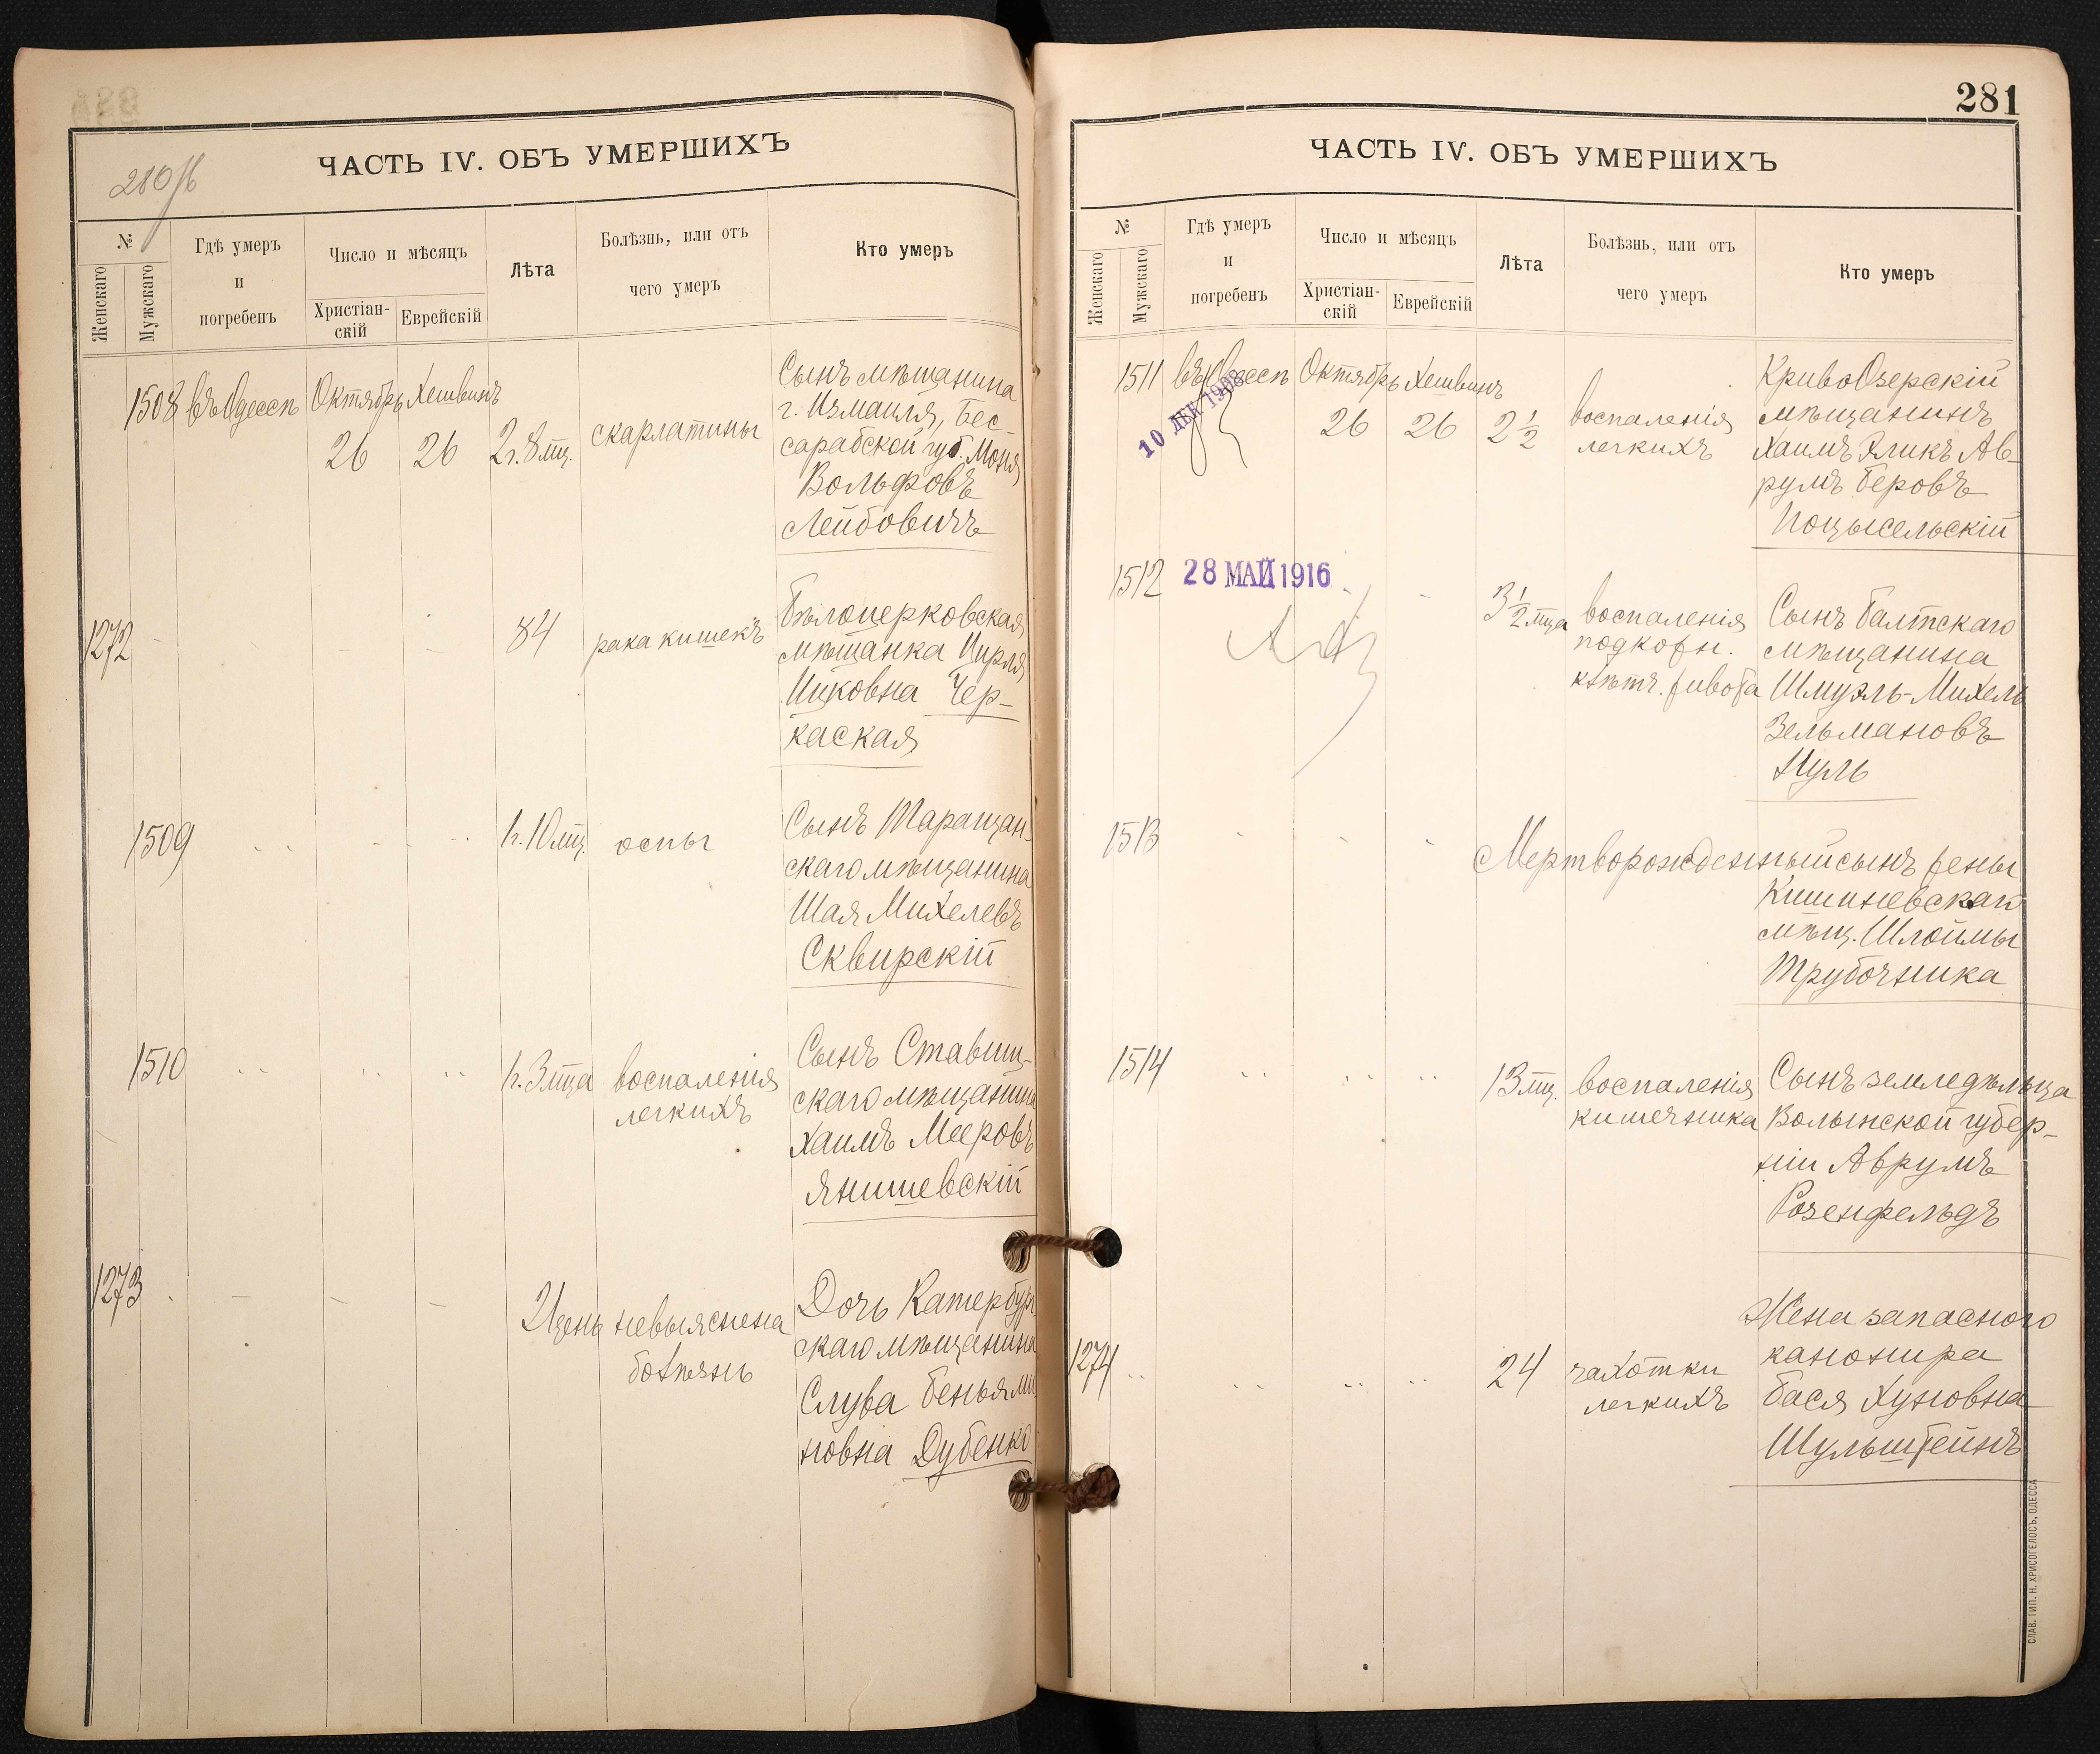 ЧАСТЬ IV. ОБЪ УМЕРШИХЪ
№
Женскаго
Мужскаго
Гдѣ умеръ
и
погребенъ
Число и мѣсяцъ
Христіан-
скій
Еврейскій
Лѣта
Болѣзнь, или отъ
чего умеръ
Кто умеръ
1508 въ Одессѣ Октябрь Хешвинъ
26 26 2 г. 8 мц.
скарлатины
Сынъ мѣщанина
г. Измаиля, Бес-
сарабской губ. Моня
Вольфовъ
Лейбовичъ
1272 84 рака кишекъ
Бѣлоцерковская
мѣщанка Цирля
Ицковна Чер-
каская
1509 1 г. 10 мц. оспы
Сынъ Таращан-
скаго мѣщанина
Шая Михелевъ
Сквирскій
1510 1 г. 3 мца воспаленія
легкихъ
Сынъ Ставищ-
скаго мѣщанина
Хаимъ Мееровъ
Янишевскій
1273 21 день невыяснена
болѣзнь
Дочь Катербург
скаго мѣщанина
Слува Беньями
новна Дубенко
281
ЧАСТЬ IV. ОБЪ УМЕРШИХЪ
№
Женскаго
Мужскаго
Гдѣ умеръ
и
погребенъ
Число и мѣсяцъ
Христіан-
скій
Еврейскій
Лѣта
Болѣзнь, или отъ
чего умеръ
Кто умеръ
1511 въ Одессѣ Октябрь Хешвинъ
10 ДЕК 1908
26 26 2 1/2
воспаленія
легкихъ
КривоОзерскій
мѣщанинъ
Хаимъ Эликъ Ав-
румъ Беровъ
Поцысельскій
1512 28 МАЙ 1916
3 1/2 мца воспаленія
подкожн.
клѣтч. живота
Сынъ Балтскаго
мѣщанина
Шмуэль-Михель
Зельмановъ
Нуль
1513 Мертворожденный сынъ жены
Кишиневскаго
мѣщ. Шлоймы
Трубочника
1514 13 мц. воспаленія
кишечника
Сынъ земледѣльца
Волынской губер-
ніи Аврумъ
Розенфельдъ
1274 24 чахотки
легкихъ
Жена запасного
канонира
Бася Хуновна
Шульштейнъ
СЛАВ. ТИП. Н. ХРИСОГЕЛОСЪ, ОДЕССА